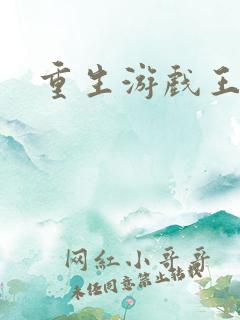 重生游戏王
网红小哥哥
未经同意禁止转载